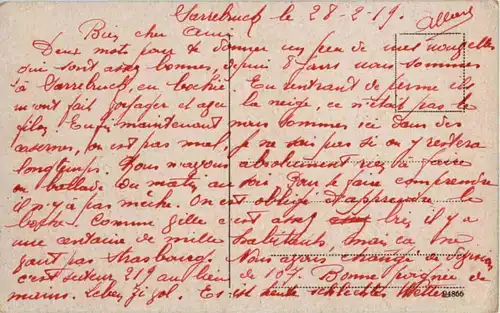 Sarrebruck le 28-2-19.
Albert
Bien cher ami
Deux mots pour te donner un peu de mes nouvelles
qui sont assez bonnes, depuis 8 jours nous sommes
à Sarrebruck, en bochie. En rentrant de perme ils
m'ont fait voyager et à la neige, ce n'était pas le
filon. Enfin maintenant nous sommes ici dans des
casernes, on est pas mal, je ne sais pas si on y restera
longtemps. Nous n'avons absolument rien à faire
en ballade du matin au soir. Pour se faire comprendre
il n'y a pas mèche. On est obligé d'apprendre le
boche. Comme ville c'est assez bien il y a
une centaine de mille habitants, mais ça ne
vaut pas Strasbourg. Nous avons changé de
c'est secteur 219 au lieu de 107. Bonne poignée de
mains. Es ist heute schlechtes Wetter
94866